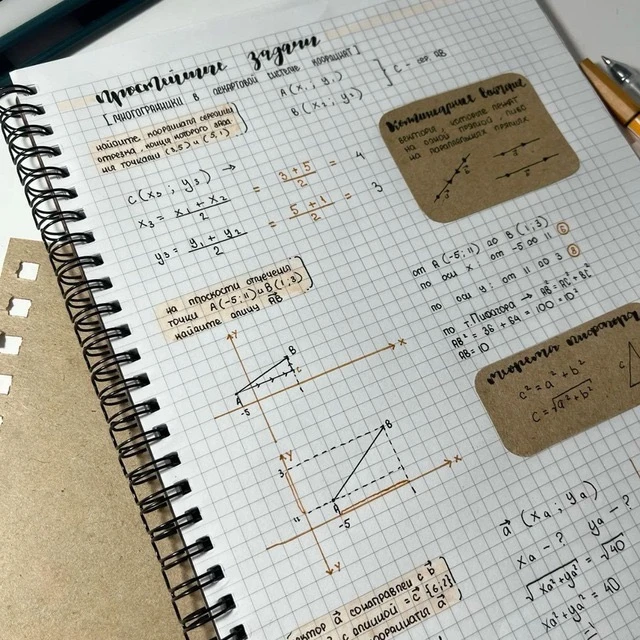 простейшие задачи
[многогранники в декартовой системе координат]
A(x₁; y₁)
B(x₂; y₂)
] C = сер. AB
найдите координаты середины
отрезка, концы которого даны
на точками (3,5) и (5,1)
C(x₃; y₃) →
x₃ = x₁ + x₂ / 2 = 3 + 5 / 2 = 4
y₃ = y₁ + y₂ / 2 = 5 + 1 / 2 = 3
Коллинеарные вектора
вектора, которые лежат
на одной прямой, либо
на параллельных прямых
на плоскости отмечены
точки A(-5; 11) и B(1, 3)
найдите длину AB
от A(-5; 11) до B(1, 3)
по оси x: от -5 до 1 ⑥
по оси y: от 11 до 3 ⑧
по т. Пифагора → AB² = AC² + BC²
AB² = 36 + 64 = 100 = 10²
AB = 10
y
B
C
A
-5
1
x
теорема пифагора
c² = a² + b²
c = √a² + b²
c
y
B
3
11
A
-5
1
x
y
a⃗ (xa; ya)
xa - ? ya - ?
√xa² + ya² = √40
xa² + ya² = 40
вектор a⃗ сонаправлен с b⃗
с длиной = c⃗ [6; 2]
координаты a⃗